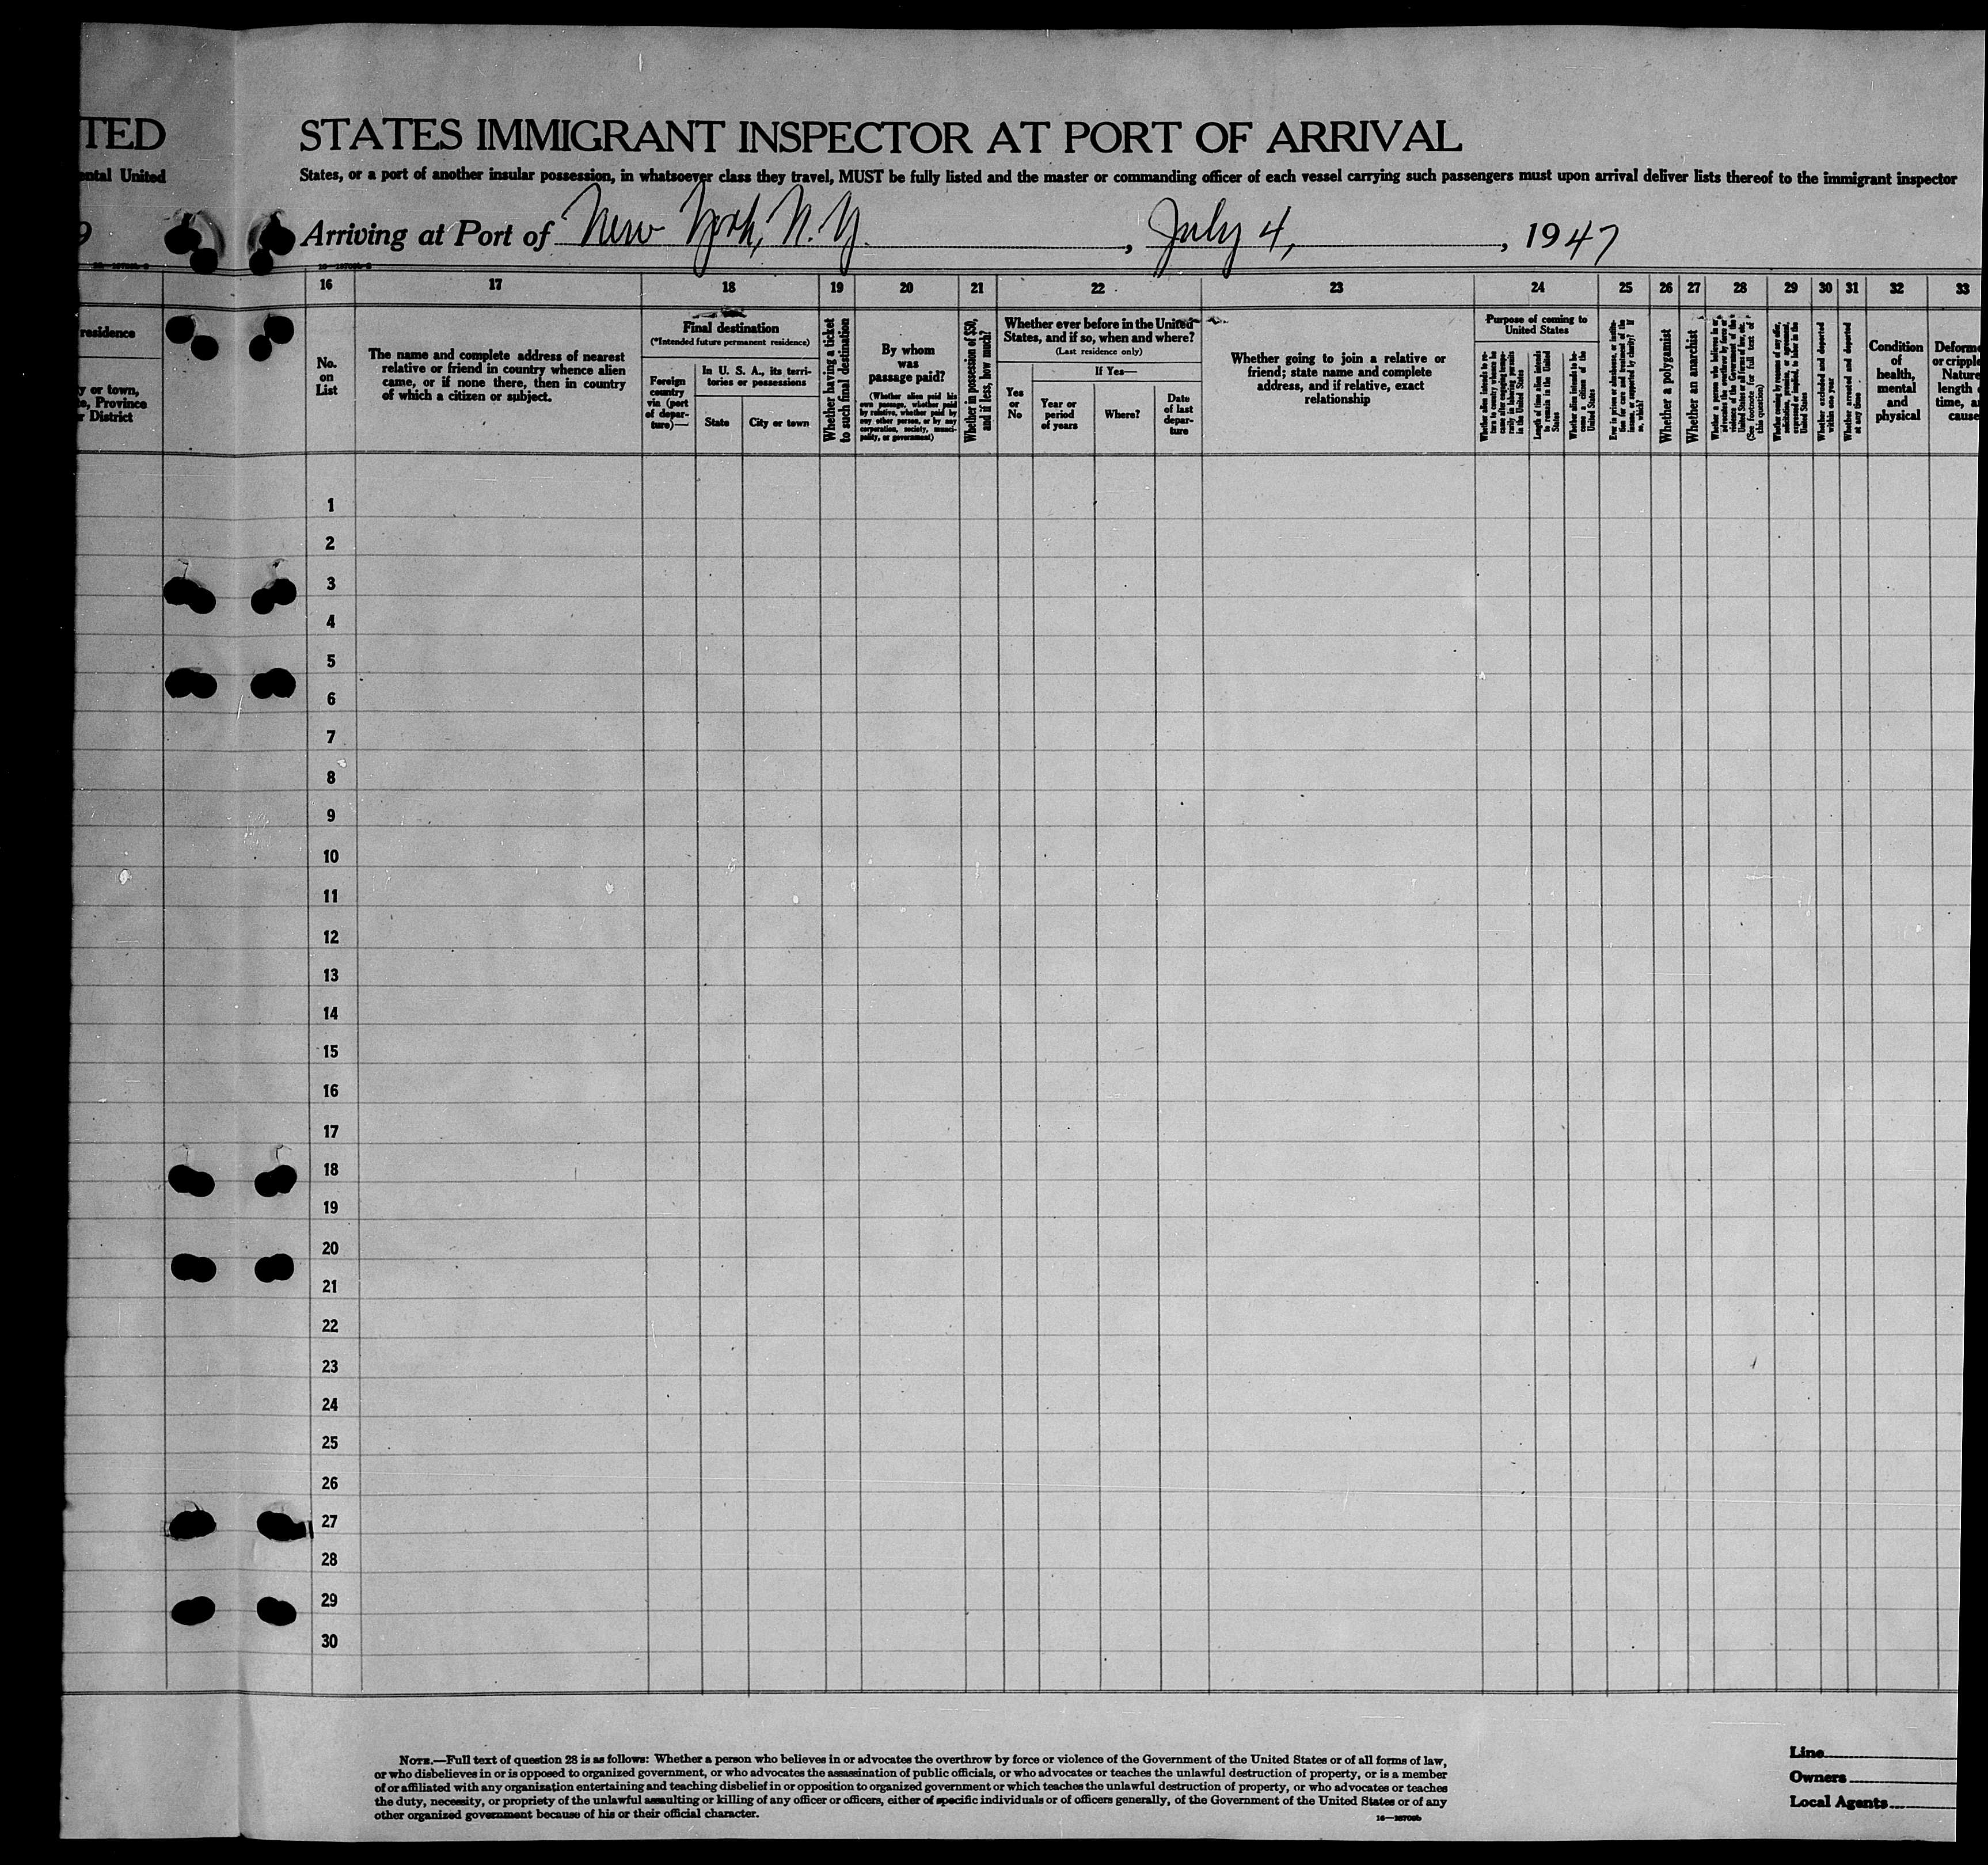 TED STATES IMMIGRANT INSPECTOR AT PORT OF ARRIVAL
ental United States, or a port of another insular possession, in whatsoever class they travel, MUST be fully listed and the master or commanding officer of each vessel carrying such passengers must upon arrival deliver lists thereof to the immigrant inspector
9 Arriving at Port of New York, N.Y. , July 4, , 1947
16 17 18 19 20 21 22 23 24 25 26 27 28 29 30 31 32 33
residence
y or town,
e, Province
r District
No.
on
List
The name and complete address of nearest
relative or friend in country whence alien
came, or if none there, then in country
of which a citizen or subject.
Final destination
(*Intended future permanent residence)
Foreign
country
via (port
of depar-
ture)—
In U. S. A., its terri-
tories or possessions
State
City or town
Whether having a ticket
to such final destination
By whom
was
passage paid?
(Whether alien paid his
own passage, whether paid
by relative, whether paid by
any other person, or by any
corporation, society, munici-
pality, or government)
Whether in possession of $50,
and if less, how much?
Whether ever before in the United
States, and if so, when and where?
(Last residence only)
Yes
or
No
If Yes—
Year or
period
of years
Where?
Date
of last
depar-
ture
Whether going to join a relative or
friend; state name and complete
address, and if relative, exact
relationship
Purpose of coming to
United States
Whether alien intends to re-
turn to country whence he
came after engaging tempo-
rarily in laboring pursuits
in the United States
Length of time alien intends
to remain in the United
States
Whether alien intends to be-
come a citizen of the
United States
Ever in prison or almshouse, or institu-
tion for care and treatment of the
insane, or supported by charity? If
so, which?
Whether a polygamist
Whether an anarchist
Whether a person who believes in or
advocates the overthrow by force or
violence of the Government of the
United States or all forms of law, etc.
(See footnote for full text of
this question)
Whether coming by reason of any offer,
solicitation, promise, or agreement,
expressed or implied, to labor in the
United States
Whether excluded and deported
within one year
Whether arrested and deported
at any time
Condition
of
health,
mental
and
physical
Deforme
or cripple
Nature
length o
time, a
cause
1
2
3
4
5
6
7
8
9
10
11
12
13
14
15
16
17
18
19
20
21
22
23
24
25
26
27
28
29
30
NOTE.—Full text of question 28 is as follows: Whether a person who believes in or advocates the overthrow by force or violence of the Government of the United States or of all forms of law,
or who disbelieves in or is opposed to organized government, or who advocates the assassination of public officials, or who advocates or teaches the unlawful destruction of property, or is a member
of or affiliated with any organization entertaining and teaching disbelief in or opposition to organized government or which teaches the unlawful destruction of property, or who advocates or teaches
the duty, necessity, or propriety of the unlawful assaulting or killing of any officer or officers, either of specific individuals or of officers generally, of the Government of the United States or of any
other organized government because of his or their official character.
Line
Owners
Local Agents